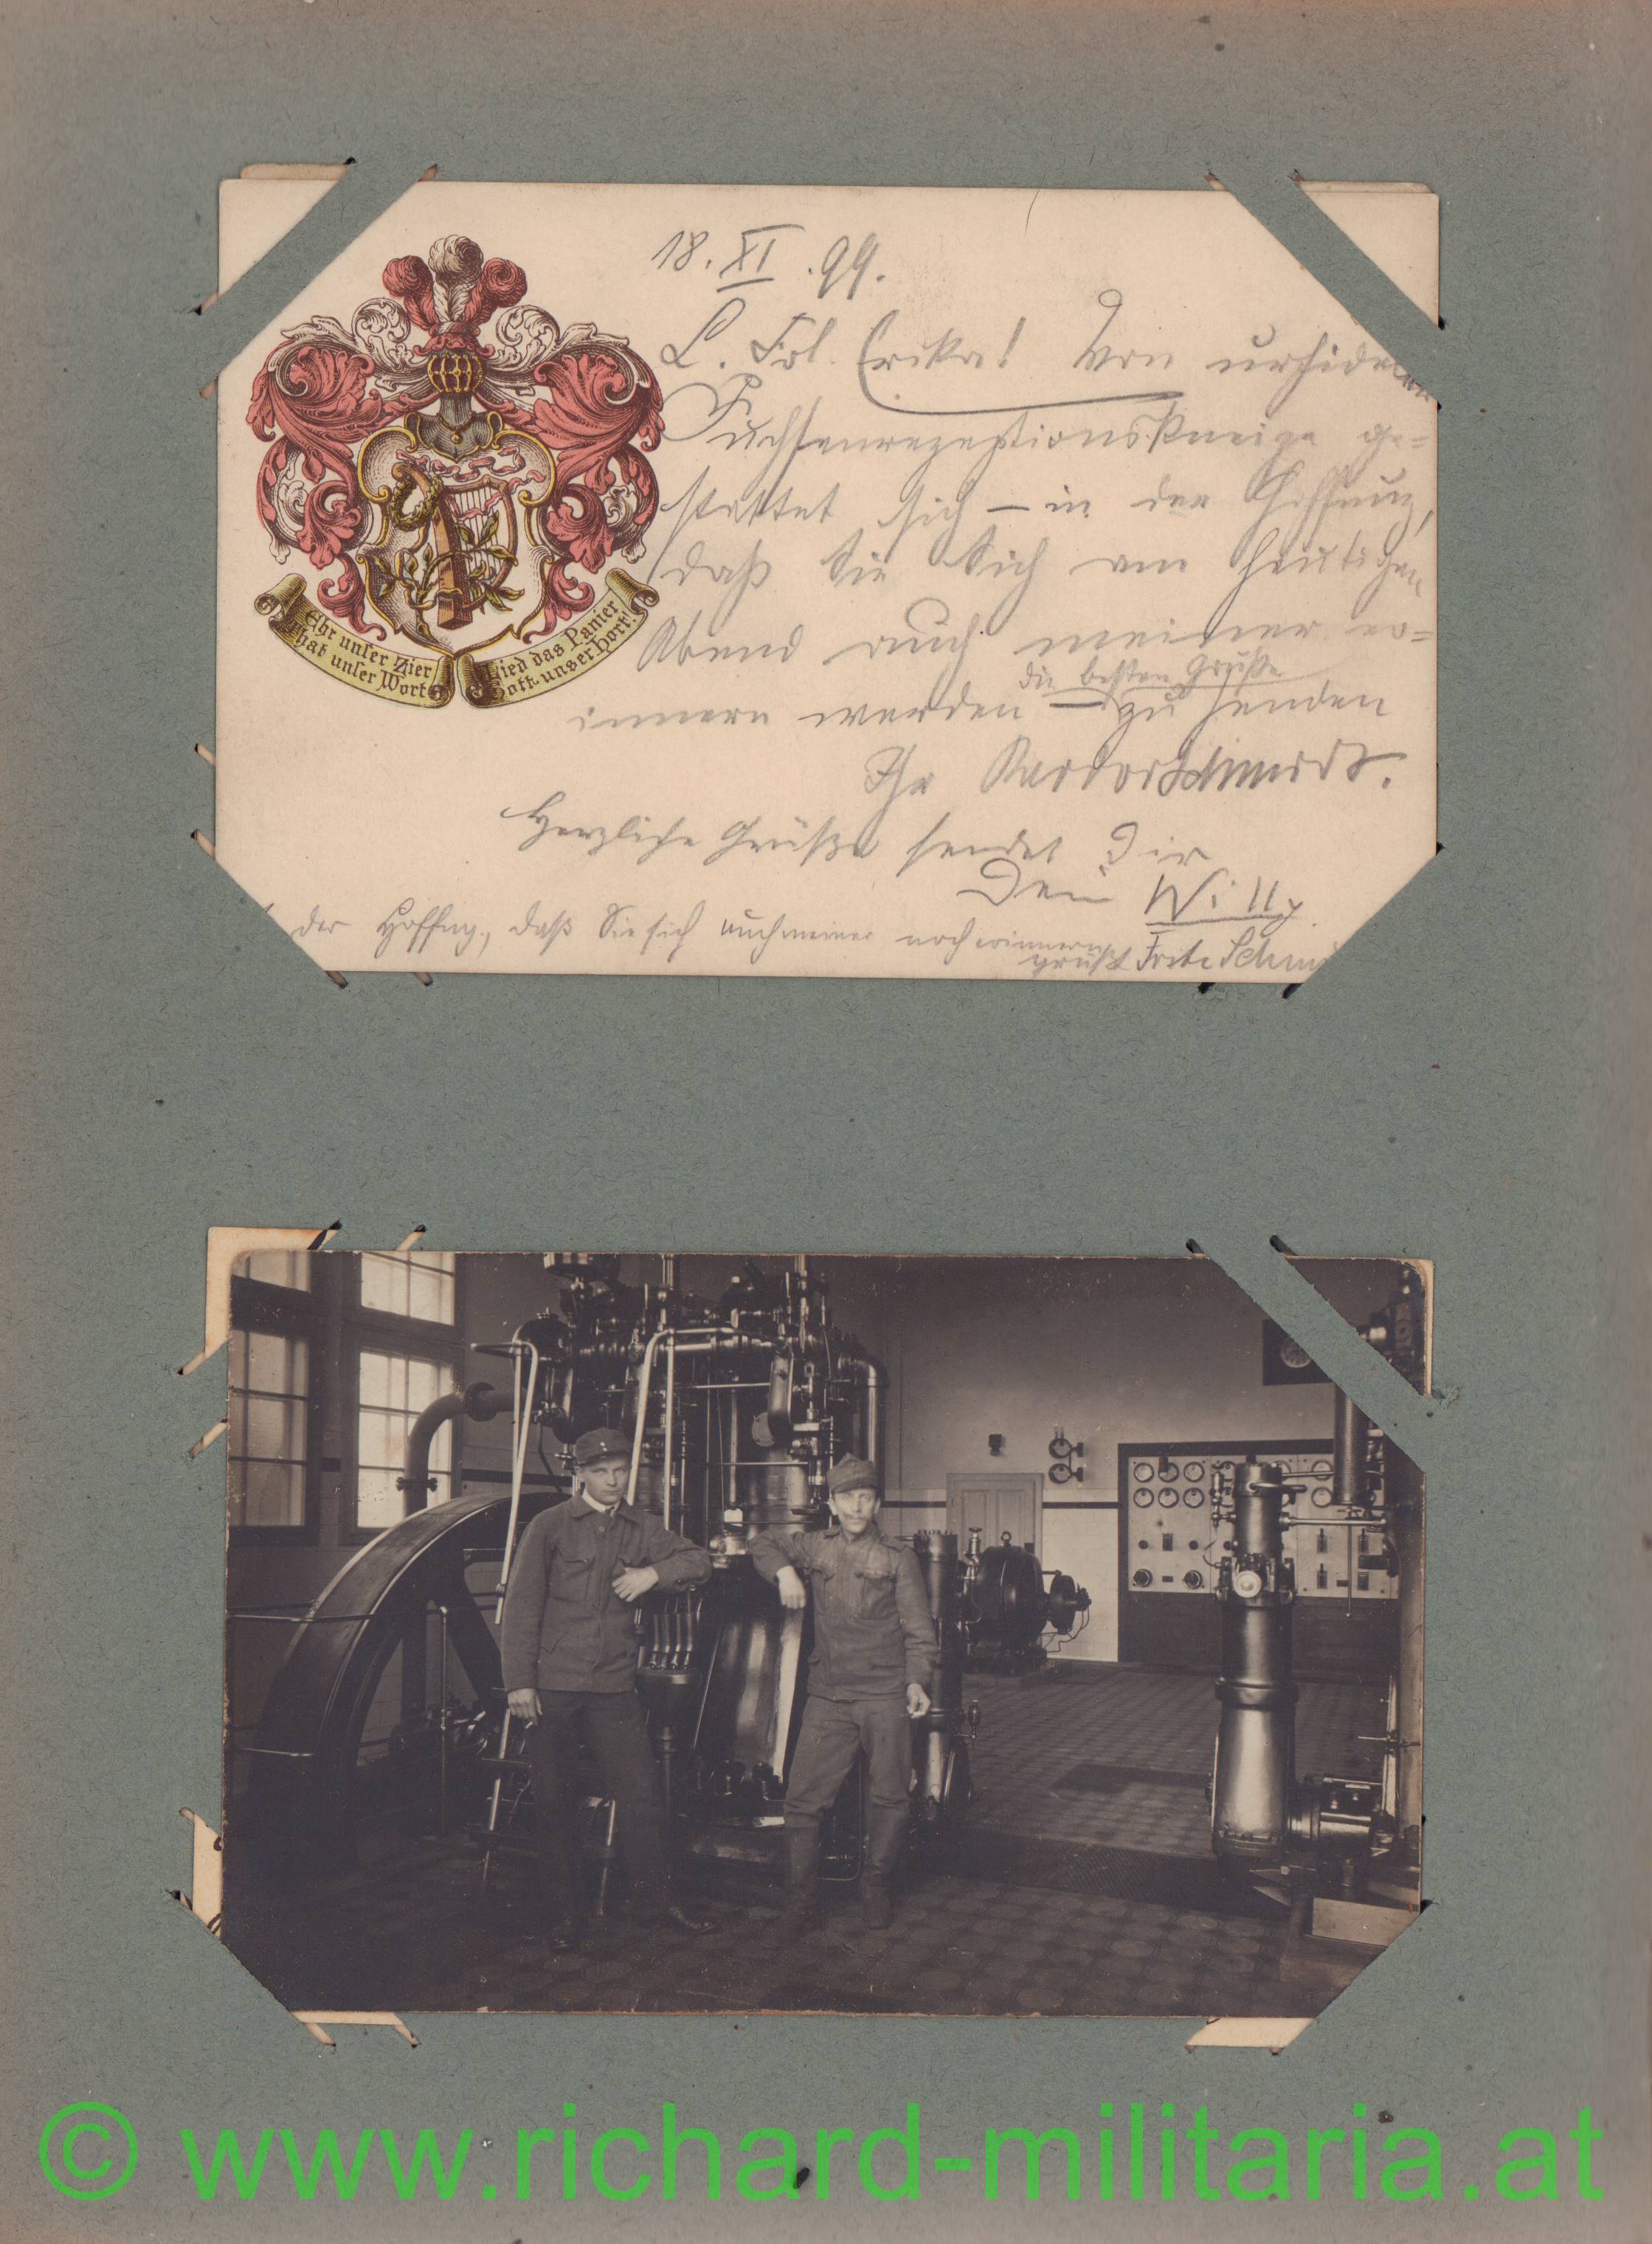 18. XI. 99.
L. Frl. Erika! Von urfideler
Fuchsenrezeptionskneipe ge=
stattet sich – in der Hoffnung,
daß Sie Sich am heutigen
Abend auch meiner er=
innern werden – die besten Grüße zu senden
Ihr
Herzliche Grüße sendet Dir
Dein Willy
der Hoffng., daß Sie sich auch meiner noch erinnern,
grüßt Fritz
Ehr unser Zier
That unser Wort
Lied das Panier
Gott unser Hort!
© www.richard-militaria.at